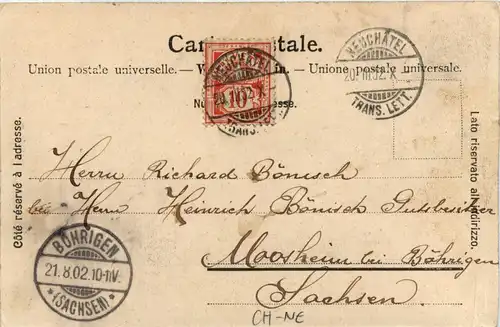 Carte postale.
NEUCHÂTEL
20. III. 02. X
TRANS. LETT.
NEUCHÂTEL
Union postale universelle. — W — Unione postale universale.
10
Nur
Côté réservé à l'adresse.
Lato riservato all'indirizzo.
Herrn Richard Bönisch
bei Herrn Heinrich Bönisch Gutsbesitzer
Moosheim bei Böhrigen
Sachsen.
BÖHRIGEN
21.8.02.10-11V.
*(SACHSEN)*
CH-NE